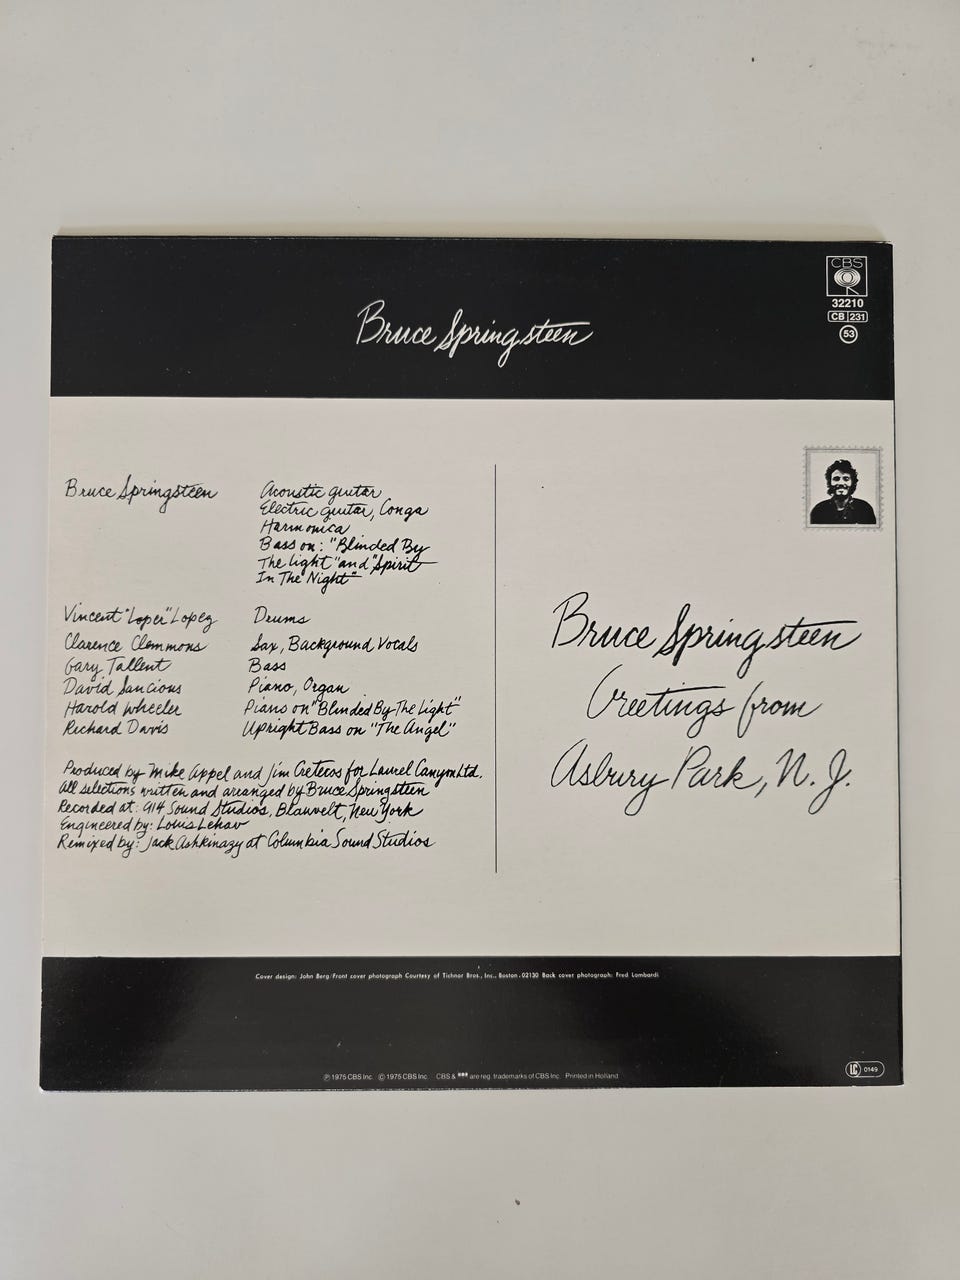 Bruce Springsteen
CBS
32210
CB 231
53
Bruce Springsteen Acoustic guitar
Electric guitar, Conga
Harmonica
Bass on: "Blinded By
The Light" and "Spirit
In The Night"
Vincent "Loper" Lopez Drums
Clarence Clemmons Sax, Background Vocals
Gary Tallent Bass
David Sancious Piano, Organ
Harold Wheeler Piano on "Blinded By The Light"
Richard Davis Upright Bass on "The Angel"
Produced by Mike Appel and Jim Cretecos for Laurel Canyon Ltd.
All selections written and arranged by Bruce Springsteen
Recorded at: 914 Sound Studios, Blauvelt, New York
Engineered by: Louis Lehav
Remixed by: Jack Ashkinazy at Columbia Sound Studios
Bruce Springsteen
Greetings from
Asbury Park, N.J.
Cover design: John Berg/Front cover photograph Courtesy of Tichnor Bros., Inc., Boston, 02130 Back cover photograph: Fred Lombardi
℗ 1975 CBS Inc. © 1975 CBS Inc. CBS & are reg. trademarks of CBS Inc. Printed in Holland
LC 0149